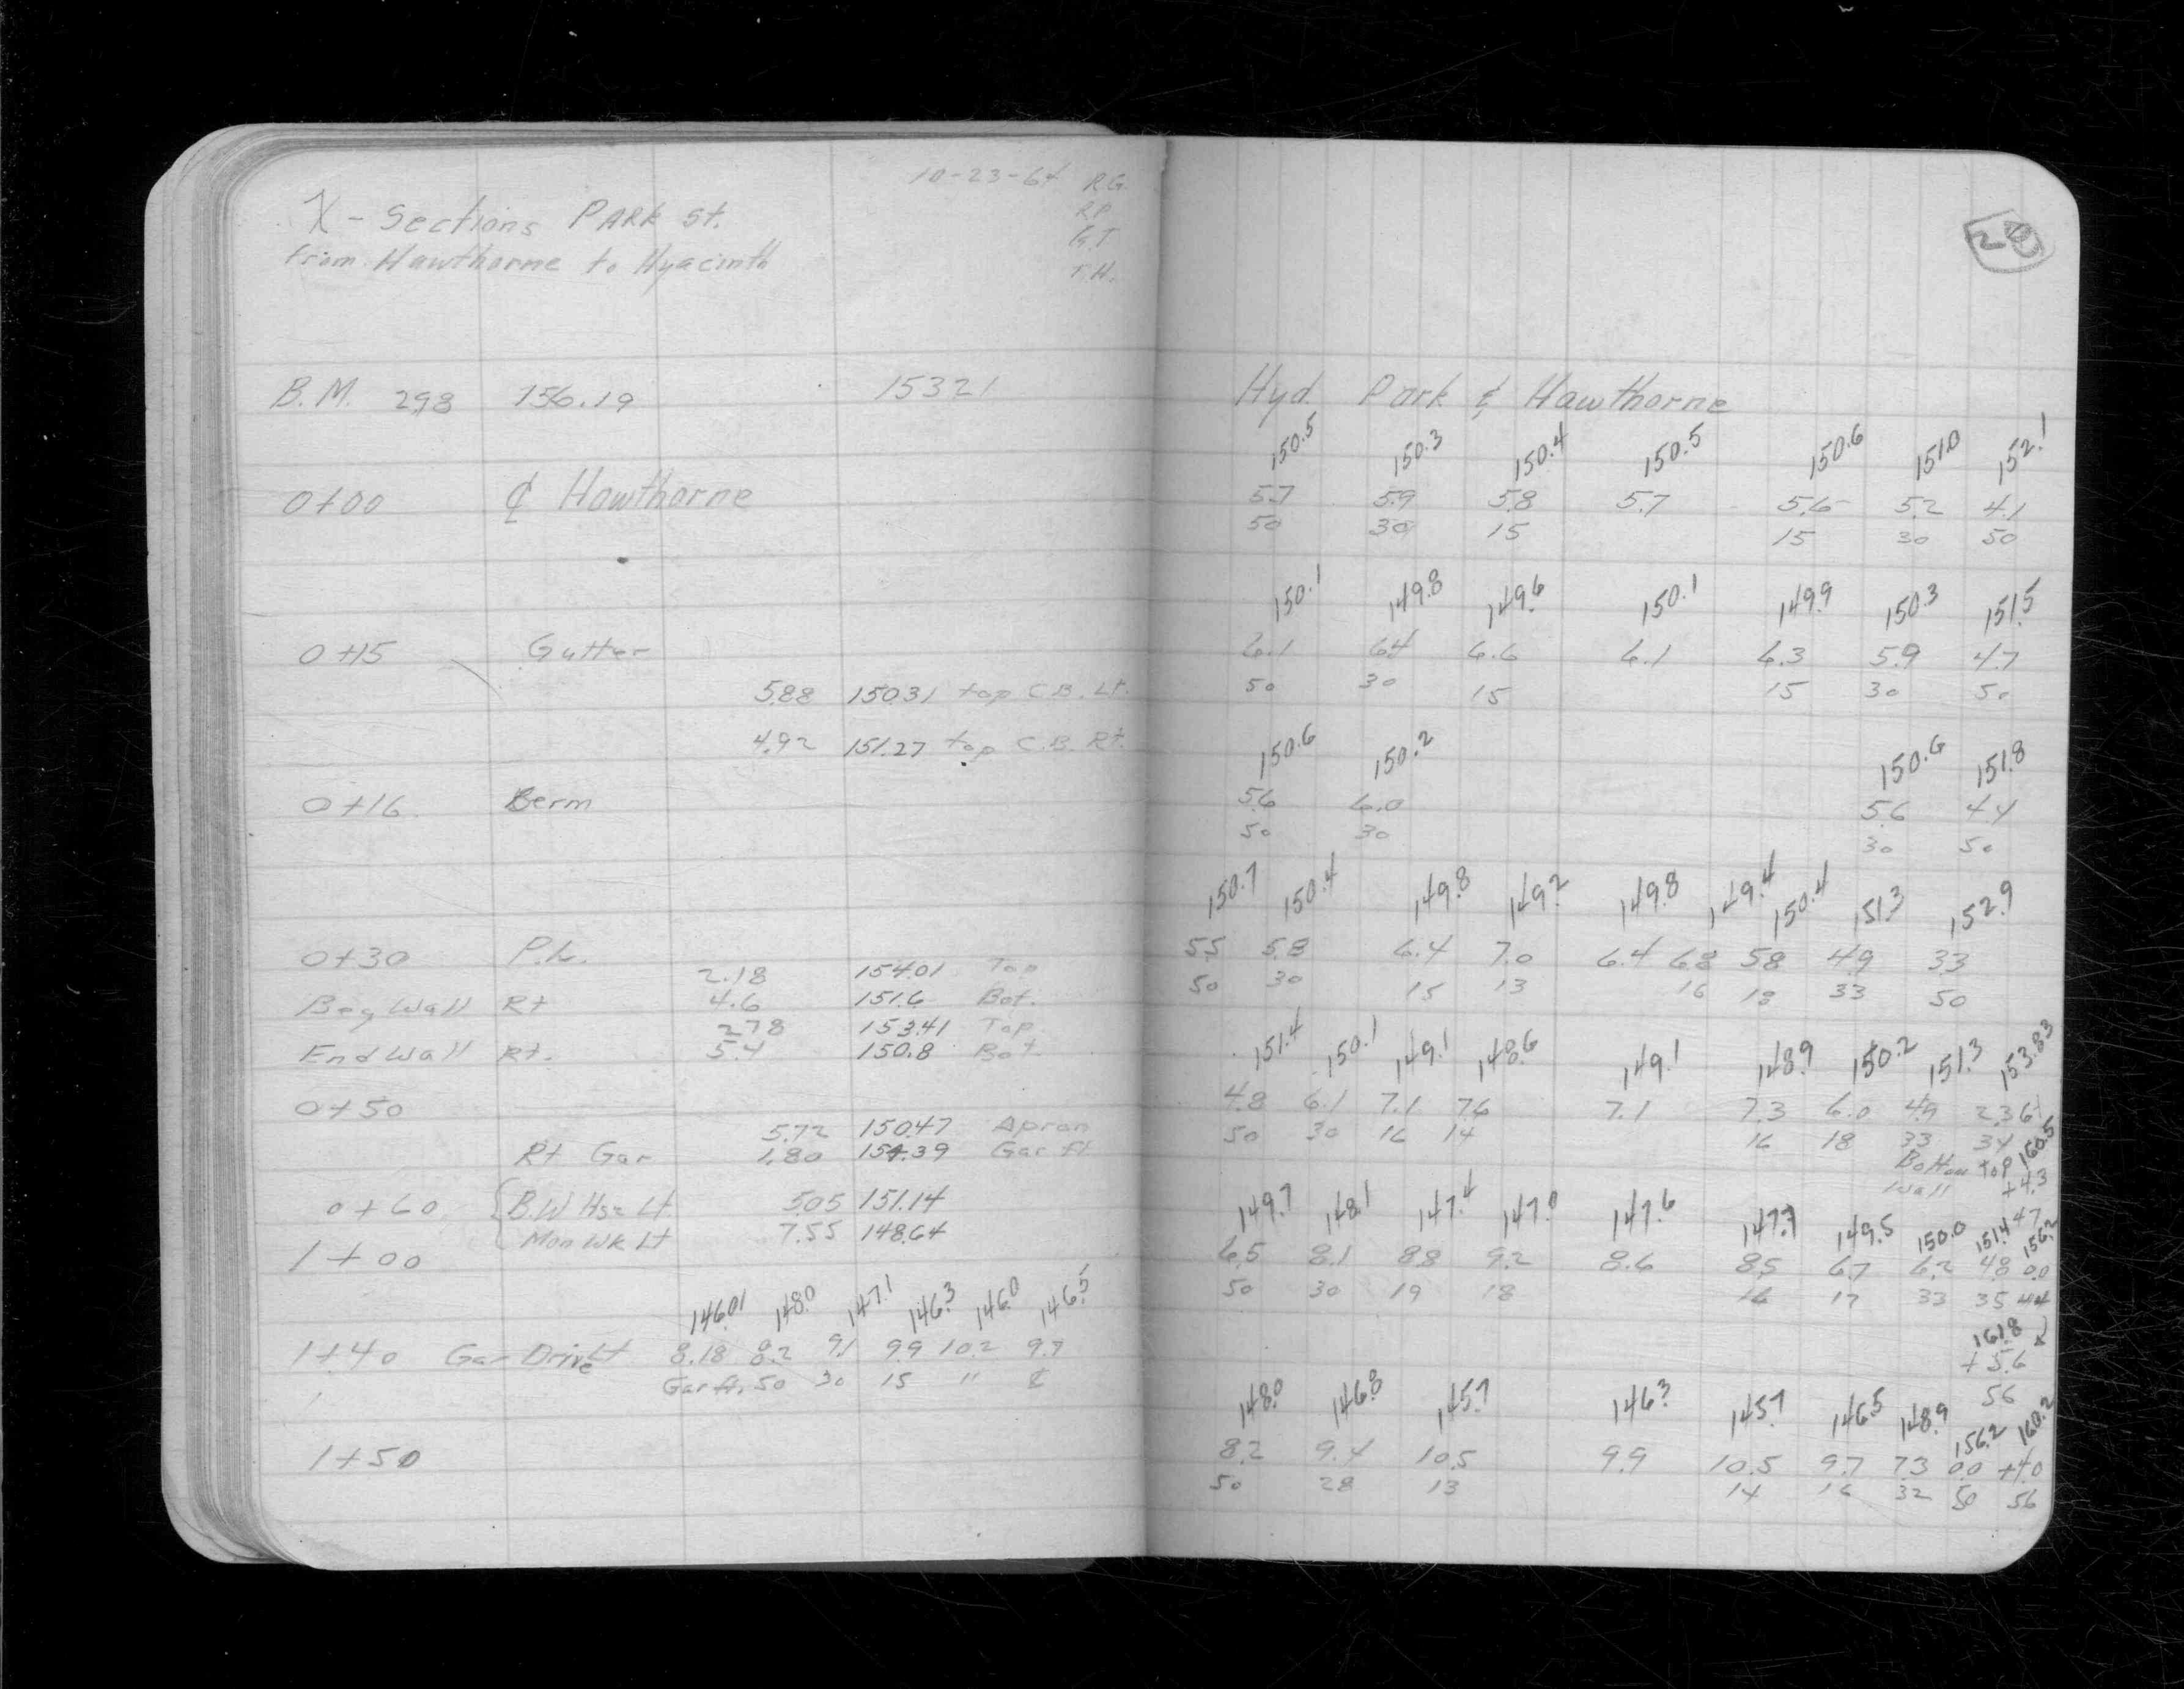 10-23-64 RG
X - Sections PARK St. RP
G.T
from Hawthorne to Hyacinth T.H.
B.M. 2.98 156.19 153.21
0+00 ℄ Hawthorne
0+15 Gutter
5.88 150.31 top C.B. Lt.
4.92 151.27 top C.B. Rt.
0+16 Berm
0+30 P.L.
2.18 154.01 Top
Beg Wall Rt 4.6 151.6 Bot.
2.78 153.41 Top
End Wall Rt. 5.4 150.8 Bot.
0+50
5.72 150.47 Apron
Rt Gar 1.80 154.39 Gar fl
0+60 B.W Hse Lt. 5.05 151.14
Mon Wk Lt 7.55 148.64
1+00
148.01 148.0 147.1 146.3 146.0 146.5
1+40 Gar Drive Lt 8.18 8.2 9.1 9.9 10.2 9.7
Gar fl. 50 30 15 11 ℄
1+50
20
Hyd Park & Hawthorne
150.5 150.3 150.4 150.5 150.6 151.0 152.1
5.7 5.9 5.8 5.7 5.6 5.2 4.1
50 30 15 15 30 50
150.1 149.8 149.6 150.1 149.9 150.3 151.5
6.1 6.4 6.6 6.1 6.3 5.9 4.7
50 30 15 15 30 50
150.6 150.2 150.6 151.8
5.6 6.0 5.6 4.4
50 30 30 50
150.7 150.4 149.8 149.2 149.8 149.4 150.4 151.3 152.9
5.5 5.8 6.4 7.0 6.4 6.8 5.8 4.9 3.3
50 30 15 13 16 18 33 50
151.4 150.1 149.1 148.6 149.1 148.9 150.2 151.3 153.83
4.8 6.1 7.1 7.6 7.1 7.3 6.0 4.9 2.36
50 30 16 14 16 18 33 34
Bottom top 160.5
Wall +4.3
47
149.7 148.1 147.4 147.0 147.6 147.7 149.5 150.0 151.4 156.2
6.5 8.1 8.8 9.2 8.6 8.5 6.7 6.2 4.8 0.0
50 30 19 18 16 17 33 35 44
161.8
+5.6
56
148.0 146.8 145.7 146.3 145.7 146.5 148.9 156.2 160.2
8.2 9.4 10.5 9.9 10.5 9.7 7.3 0.0 +4.0
50 28 13 14 16 32 50 56